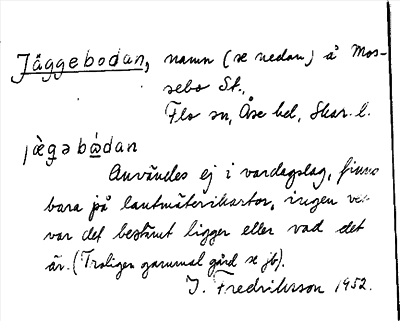 Jäggebodan, namn (se nedan) å Mos-
sebo St.,
Flo sn, Åse hd, Skar. l.
jæ̀gəbὼdan
Användes ej i vardagslag, finns
bara på lantmäterikartor, ingen vet
var det bestämt ligger eller vad det
är. (Troligen gammal gård se jb).
J. Fredriksson 1952.